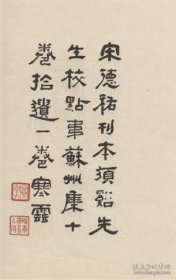 宋德祐刊本須谿先
生校點韋蘇州集十
卷拾遺一卷寒雲